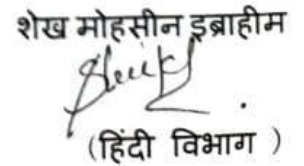 शेख मोहसीन इब्राहीम
(हिंदी विभाग )